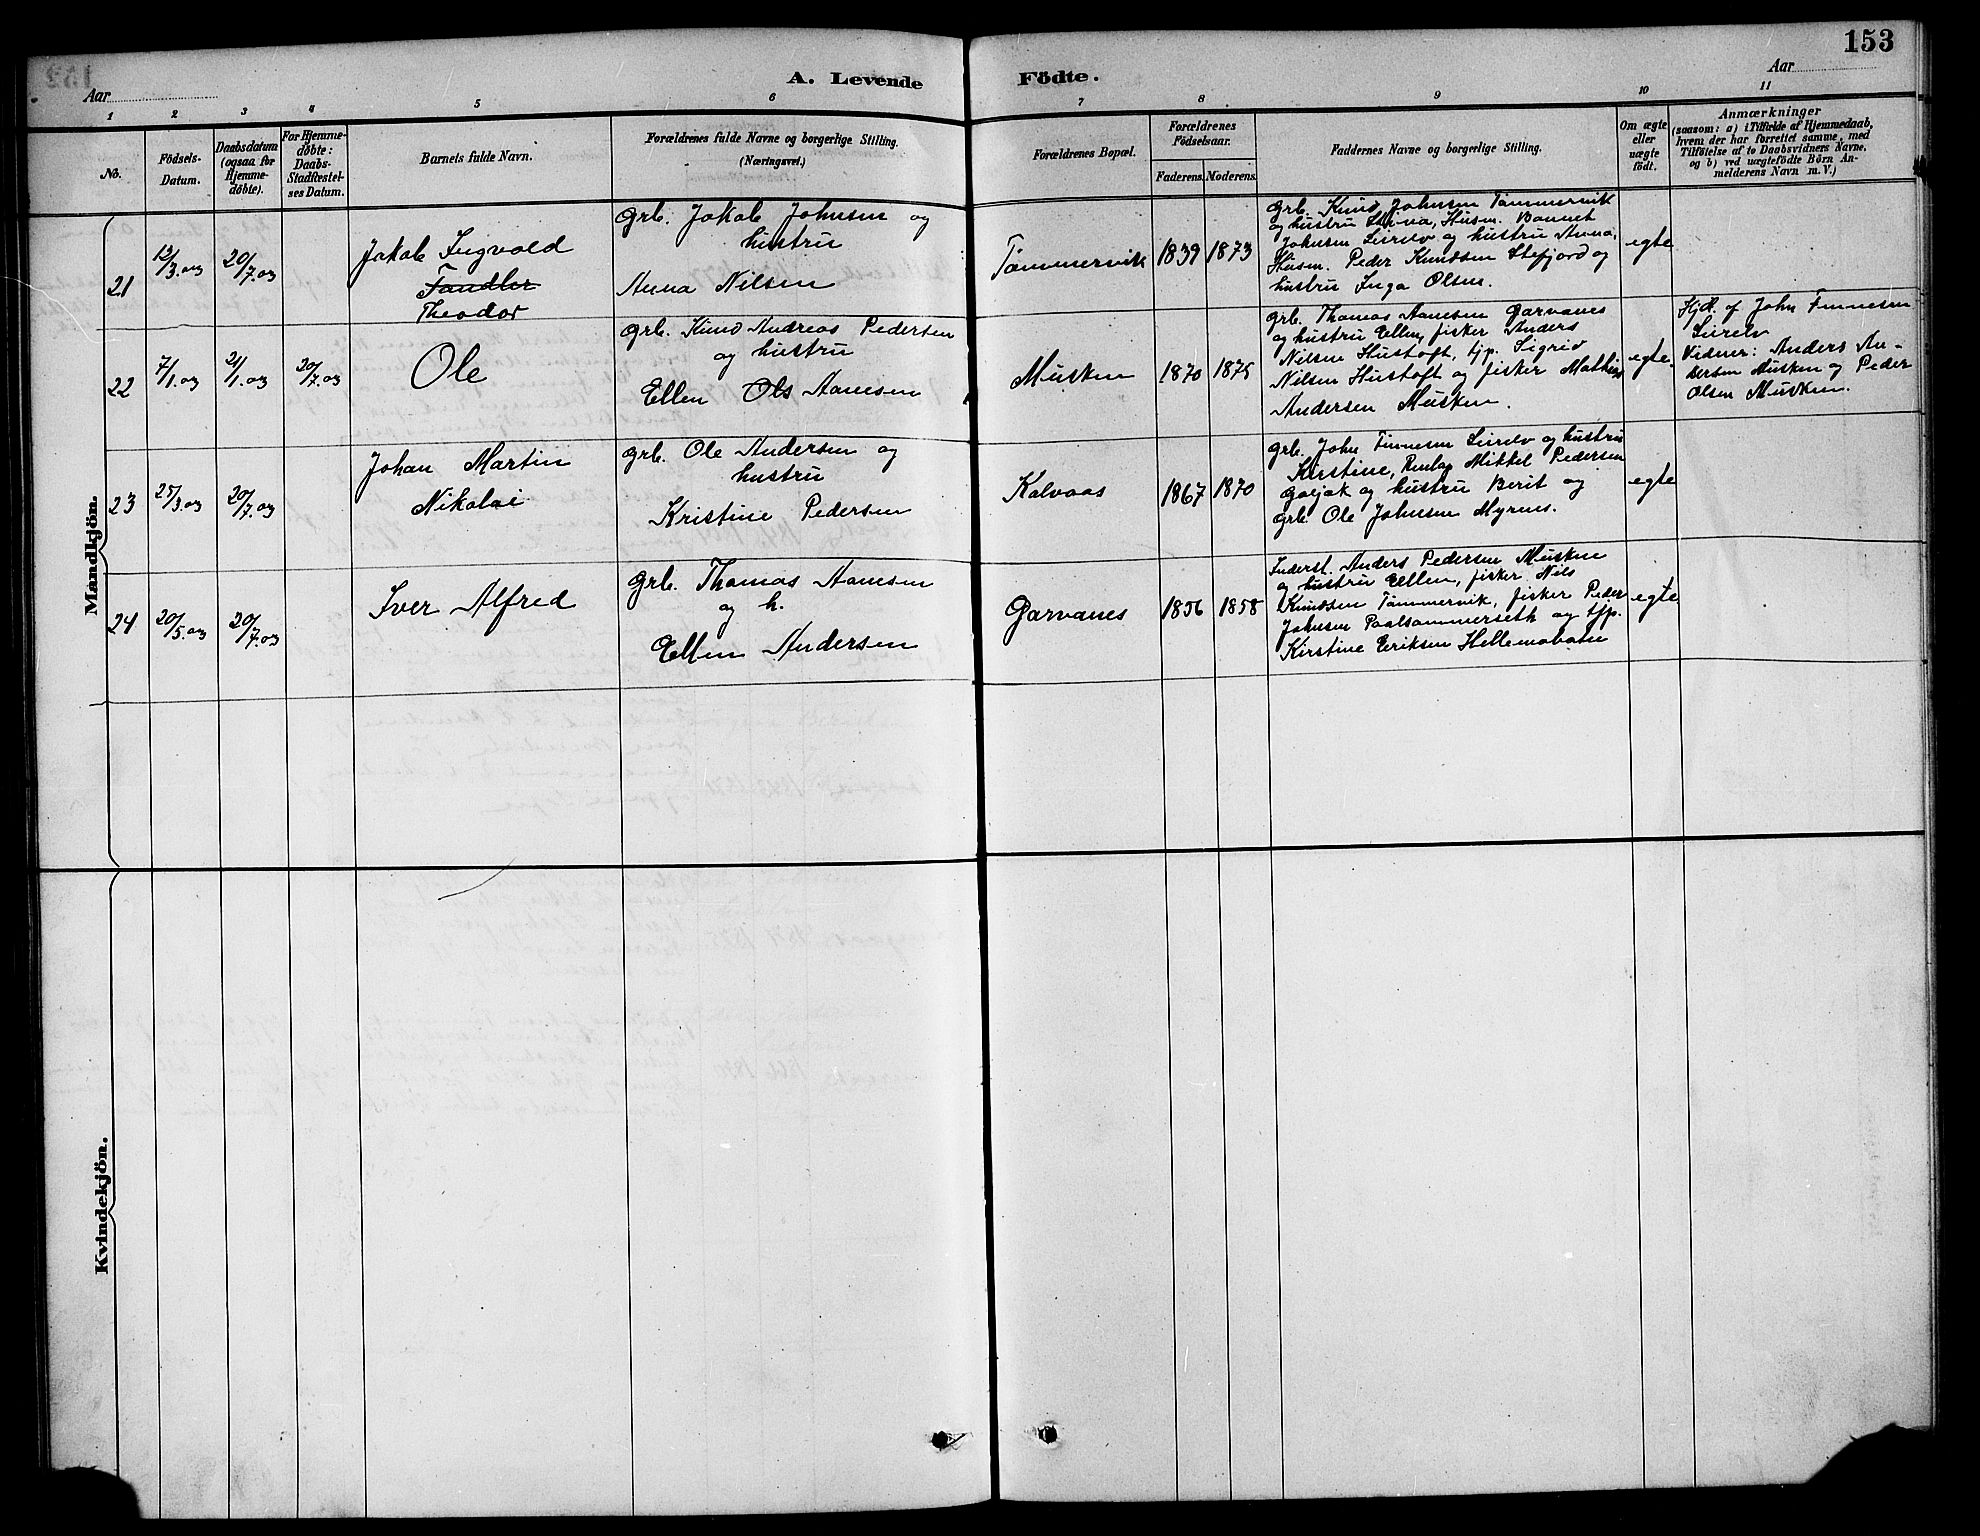 153
A. Levende Födte.
Aar
Aar
1 2 3 4 5 6 7 8 9 10 11
No.
Födsels-
Datum.
Daabsdatum
(ogsaa for
Hjemme-
döbte).
For Hjemme-
döbte:
Daabs-
Stadfæstel-
ses Datum.
Barnets fulde Navn.
Forældrenes fulde Navne og borgerlige Stilling.
(Næringsvei.)
Forældrenes Bopæl.
Forældrenes
Födselsaar.
Faderens. Moderens.
Faddernes Navne og borgerlige Stilling.
Om ægte
eller
uægte
födt.
Anmærkninger
(saasom: a) i Tilfælde af Hjemmedaab,
hvem der har forrettet samme, med
Tilföielse af to Daabsvidners Navne,
og b) ved uægtefödte Börn An-
melderens Navn m. V.)
Mandkjön.
21
12/3.03
20/7.03
Jakob Ingvold
Theodor
Grb. Jakob Johnsen og
hustru
Anna Nilsen
Tømmervik
1839 1873
Grb. Knud Johnsen Tømmervik
og hustru Stina, Husm. Bannet
Johnsen Leirelv og hustru Anna,
Husm. Peder Knudsen Stefjord og
hustru Inga Olsen.
egte
22
7/1.03
21/1.03
20/7.03
Ole
Grb. Knud Andreas Pedersen
og hustru
Ellen Ols Aamsen
Musken
1870 1875
Grb. Thomas Aamsen Garvanes
og hustru Ellen, fisker Anders
Nilsen Hustoft, tjp. Sigrid
Nilsen Hustoft og fisker Mathias
Andersen Musken.
egte.
Hjd. af John Finnesen
Leirelv
Vidner: Anders An-
dersen Musken og Peder
Olsen Musken.
23
25/3.03
20/7.03
Johan Martin
Nikolai
Grb. Ole Andersen og
hustru
Kristine Pedersen
Kalvaas
1867 1870
Grb. John Finnesen Leirelv og hustru
Kirstine, Mikkel Pedersen
og hustru Berit og
Grb. Ole Johnsen Myrnes.
egte
24
20/5.03
20/7.03
Iver Alfred
Grb. Thomas Aamsen
og h.
Ellen Andersen
Garvanes
1856 1858
Inderst. Anders Pedersen Musken
og hustru Ellen, fisker Nils
Knudsen Tømmervik, fisker Peder
Johnsen Paalsommerseth og tjp.
Kirstine Eriksen Hellemobotn
egte
Kvindekjön.